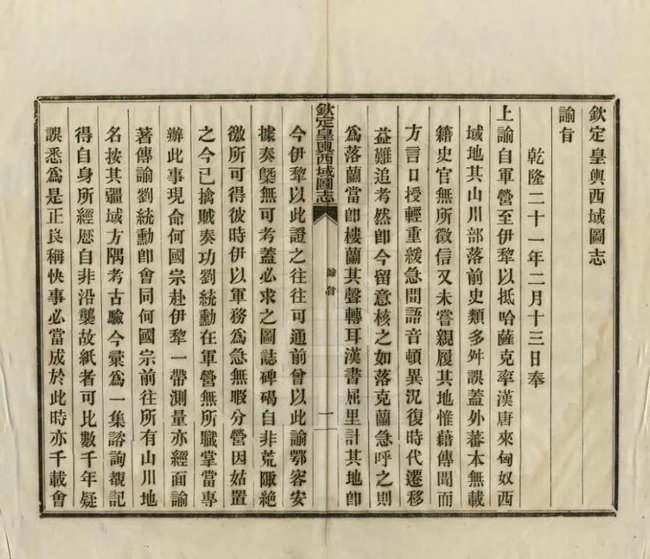 欽定皇輿西域圖志
諭旨
乾隆二十一年二月十三日奉
上諭自軍營至伊犂以抵哈薩克率漢唐來匈奴西
域地其山川部落前史類多舛誤蓋外蕃本無載
籍史官無所徵信又未嘗親履其地惟藉傳聞而
方言口授輕重緩急間語音頓異況復時代遷移
益難追考然即今留意核之如落克蘭急呼之則
爲落蘭當即樓蘭其聲轉耳漢書屈里計其地即
欽定皇輿西域圖志
諭旨
一
今伊犂以此證之往往可通前曾以此諭鄂容安
據奏槩無可考蓋必求之圖誌碑碣自非荒陬絶
徼所可得彼時伊以軍務爲急無暇分營因姑置
之今已擒賊奏功劉統勳在軍營無所職掌當專
辦此事現命何國宗赴伊犂一帶測量亦經面諭
著傳諭劉統勳即會同何國宗前往所有山川地
名按其疆域方隅考古驗今彙爲一集諮詢覩記
得自身所經歷自非沿襲故紙者可比數千年疑
誤悉爲是正良稱快事必當成於此時亦千載會